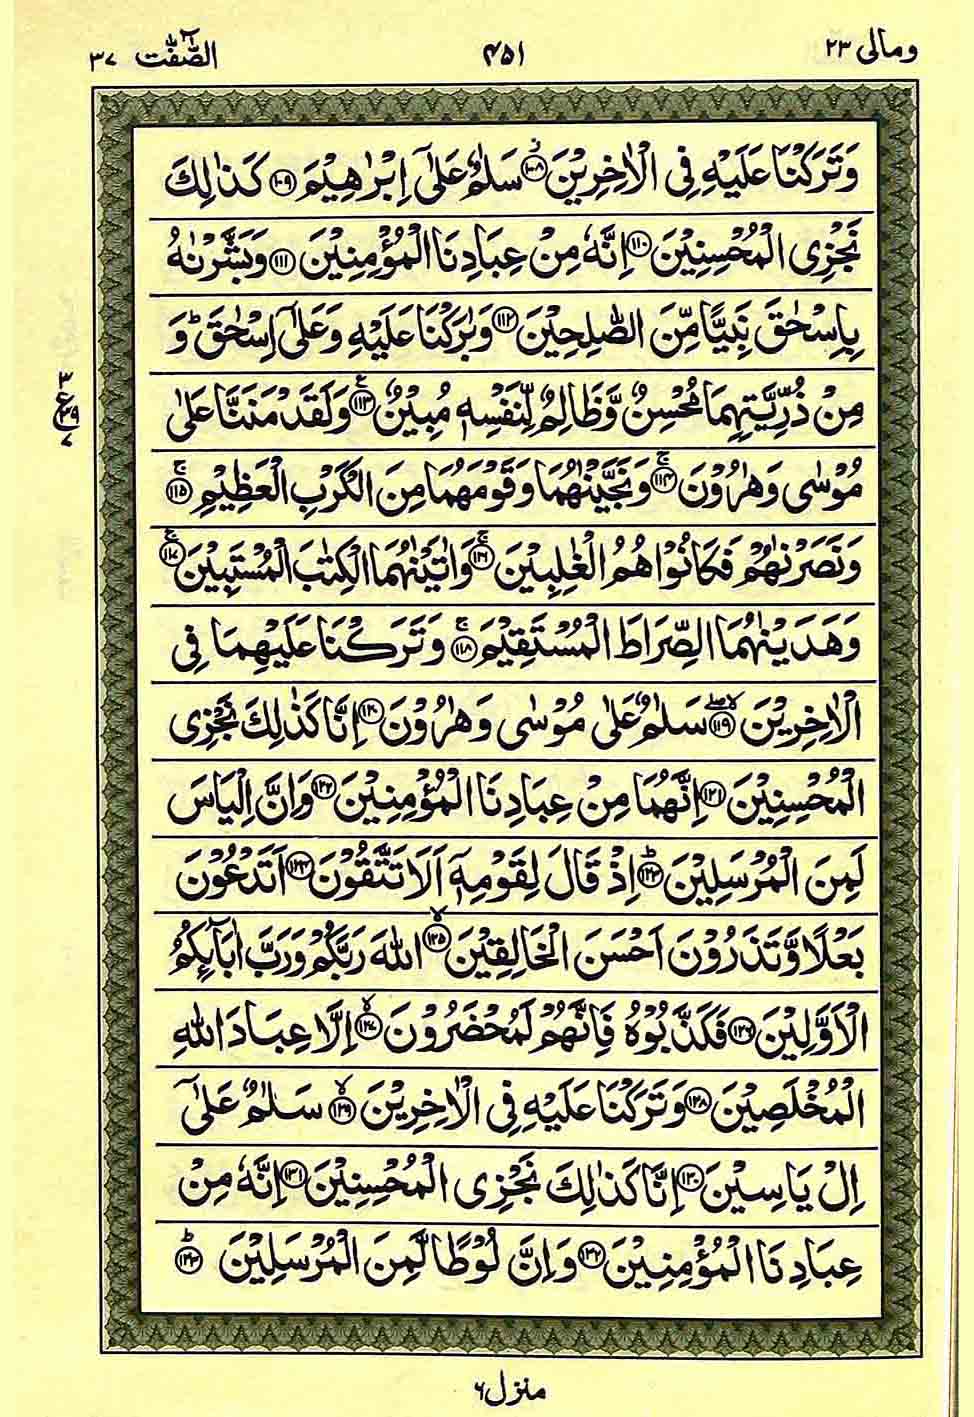 ومالی ۲۳ ۴۵۱ الصّٰٓفّٰت ۳۷
وَتَرَكْنَا عَلَيْهِ فِى الْاٰخِرِيْنَ ۱۰۸ سَلٰمٌ عَلٰٓى اِبْرٰهِيْمَ ۱۰۹ كَذٰلِكَ
نَجْزِى الْمُحْسِنِيْنَ ۱۱۰ اِنَّهٗ مِنْ عِبَادِنَا الْمُؤْمِنِيْنَ ۱۱۱ وَبَشَّرْنٰهُ
بِاِسْحٰقَ نَبِيًّا مِّنَ الصّٰلِحِيْنَ ۱۱۲ وَبٰرَكْنَا عَلَيْهِ وَعَلٰٓى اِسْحٰقَ ؕ وَ
مِنْ ذُرِّيَّتِهِمَا مُحْسِنٌ وَّظَالِمٌ لِّنَفْسِهٖ مُبِيْنٌ ۱۱۳ وَلَقَدْ مَنَنَّا عَلٰى
۳ ع ۷
مُوْسٰى وَهٰرُوْنَ ۱۱۴ وَنَجَّيْنٰهُمَا وَقَوْمَهُمَا مِنَ الْكَرْبِ الْعَظِيْمِ ۱۱۵
وَنَصَرْنٰهُمْ فَكَانُوْا هُمُ الْغٰلِبِيْنَ ۱۱۶ وَاٰتَيْنٰهُمَا الْكِتٰبَ الْمُسْتَبِيْنَ ۱۱۷
وَهَدَيْنٰهُمَا الصِّرَاطَ الْمُسْتَقِيْمَ ۱۱۸ وَتَرَكْنَا عَلَيْهِمَا فِى
الْاٰخِرِيْنَ ۱۱۹ سَلٰمٌ عَلٰى مُوْسٰى وَهٰرُوْنَ ۱۲۰ اِنَّا كَذٰلِكَ نَجْزِى
الْمُحْسِنِيْنَ ۱۲۱ اِنَّهُمَا مِنْ عِبَادِنَا الْمُؤْمِنِيْنَ ۱۲۲ وَاِنَّ اِلْيَاسَ
لَمِنَ الْمُرْسَلِيْنَ ۱۲۳ اِذْ قَالَ لِقَوْمِهٖٓ اَلَا تَتَّقُوْنَ ۱۲۴ اَتَدْعُوْنَ
بَعْلًا وَّتَذَرُوْنَ اَحْسَنَ الْخَالِقِيْنَ ۱۲۵ اللّٰهَ رَبَّكُمْ وَرَبَّ اٰبَآئِكُمُ
الْاَوَّلِيْنَ ۱۲۶ فَكَذَّبُوْهُ فَاِنَّهُمْ لَمُحْضَرُوْنَ ۱۲۷ اِلَّا عِبَادَ اللّٰهِ
الْمُخْلَصِيْنَ ۱۲۸ وَتَرَكْنَا عَلَيْهِ فِى الْاٰخِرِيْنَ ۱۲۹ سَلٰمٌ عَلٰٓى
اِلْ يَاسِيْنَ ۱۳۰ اِنَّا كَذٰلِكَ نَجْزِى الْمُحْسِنِيْنَ ۱۳۱ اِنَّهٗ مِنْ
عِبَادِنَا الْمُؤْمِنِيْنَ ۱۳۲ وَاِنَّ لُوْطًا لَّمِنَ الْمُرْسَلِيْنَ ۱۳۳
منزل ۶